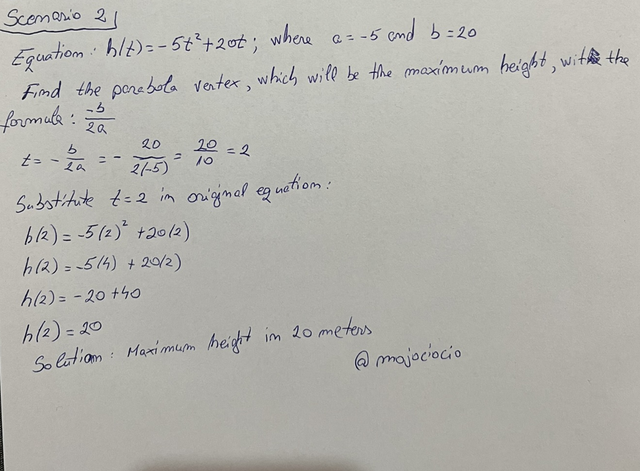 Scenario 2
Equation: h(t) = -5t² + 20t; where a = -5 and b = 20
Find the parabola vertex, which will be the maximum height, with the
formula: -b/2a
t = - b/2a = - 20/2(-5) = 20/10 = 2
Substitute t = 2 in original equation:
h(2) = -5(2)² + 20(2)
h(2) = -5(4) + 20(2)
h(2) = -20 + 40
h(2) = 20
Solution: Maximum height in 20 meters
@majociocio